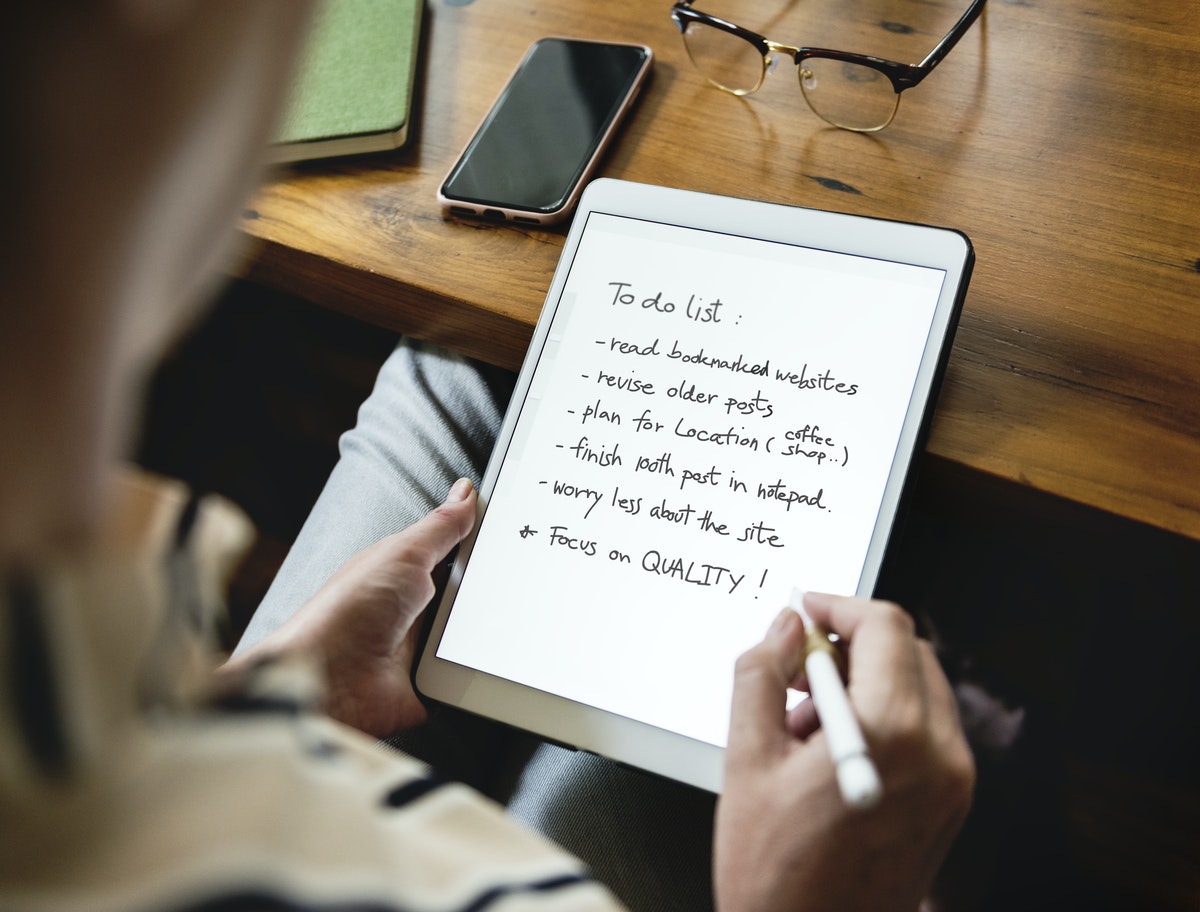 To do list :
- read bookmarked websites
- revise older posts
- plan for Location ( coffee shop.. )
- finish 100th post in notepad.
- worry less about the site
* Focus on QUALITY !